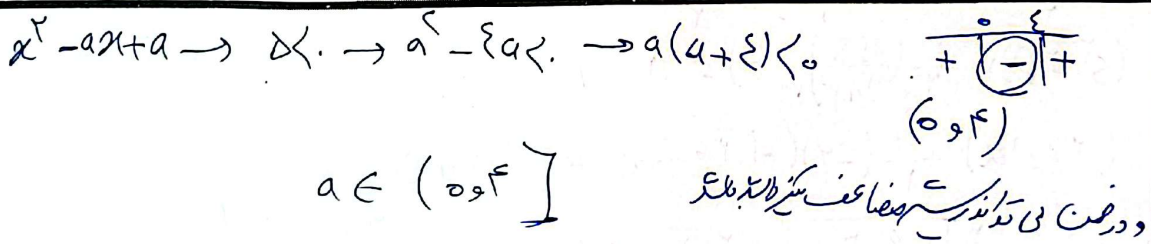 x² - ax + a → Δ<۰ → a² - ۴a<۰ → a(a+۴)<۰
۰ ۴
+ - +
(۰ و ۴)
a ∈ (۰ و ۴]
و در ضمن می تواند ریشه مضاعف نیز داشته باشد